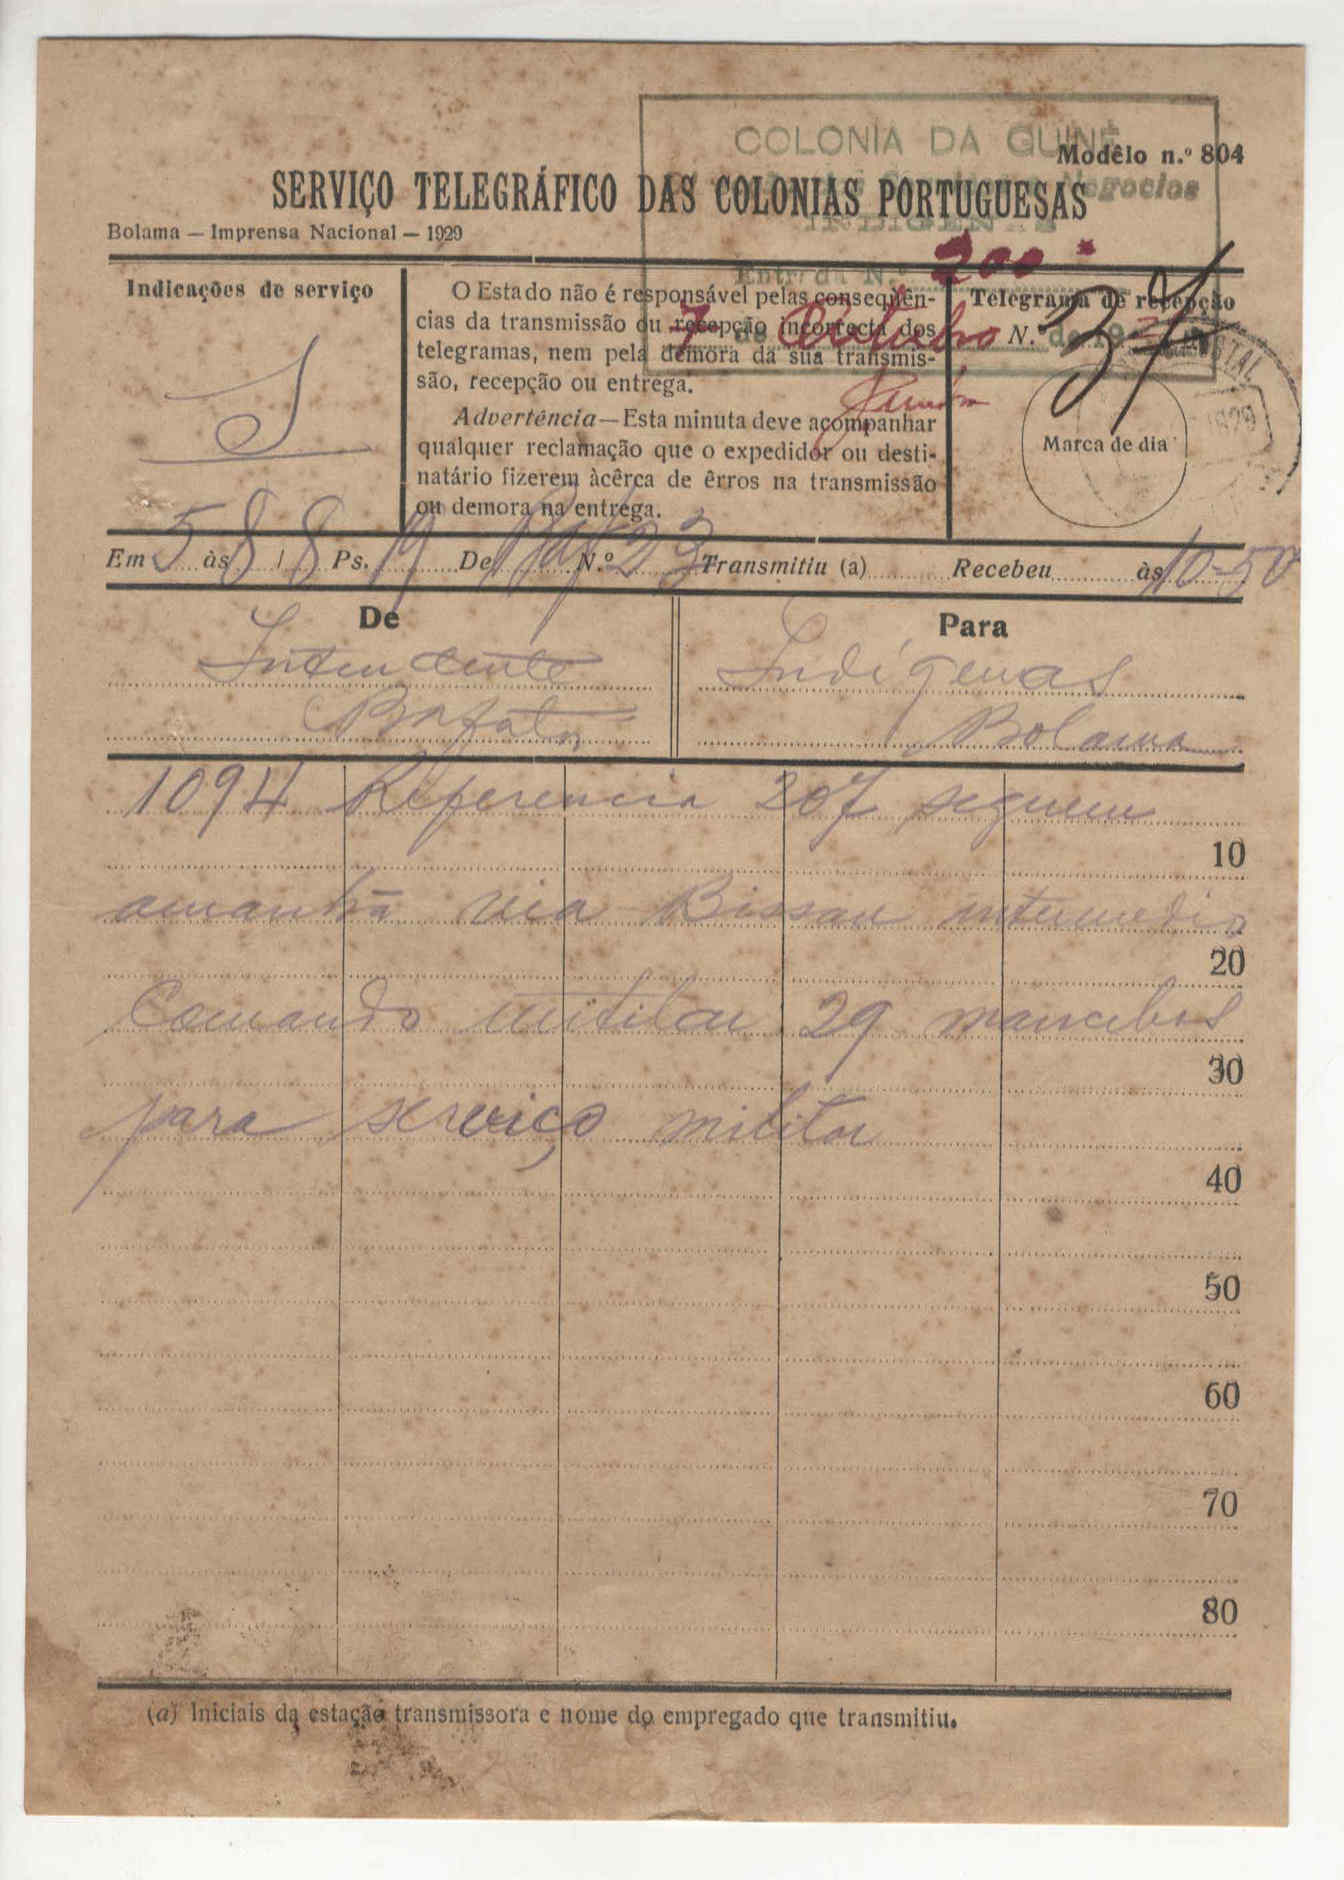 COLONIA DA GUINÉ
Modêlo n.º 804
SERVIÇO TELEGRÁFICO DAS COLONIAS PORTUGUESAS
Negocios
INDIGENAS
Bolama — Imprensa Nacional — 1929
Entrada N.º 200
7 de Outubro de 19
Indicações de serviço
S
O Estado não é responsável pelas conseqüên-
cias da transmissão ou recepção incorrecta dos
telegramas, nem pela demora da sua transmis-
são, recepção ou entrega.
Advertência—Esta minuta deve acompanhar
qualquer reclamação que o expedidor ou desti-
natário fizerem àcêrca de êrros na transmissão
ou demora na entrega.
Telegrama de recepção
N.º 37
Marca de dia
1929
Em 5 às 8 / 8 Ps. 19 De N.º 23 Transmitiu (a) Recebeu às 10-50
De
Intendente
Bafatá
Para
Indígenas
Bolama
1094 Referencia 207 seguem
10
amanhã via Bissau intermedio
20
Comando militar 29 mancebos
30
para serviço militar
40
50
60
70
80
(a) Iniciais da estação transmissora e nome do empregado que transmitiu.